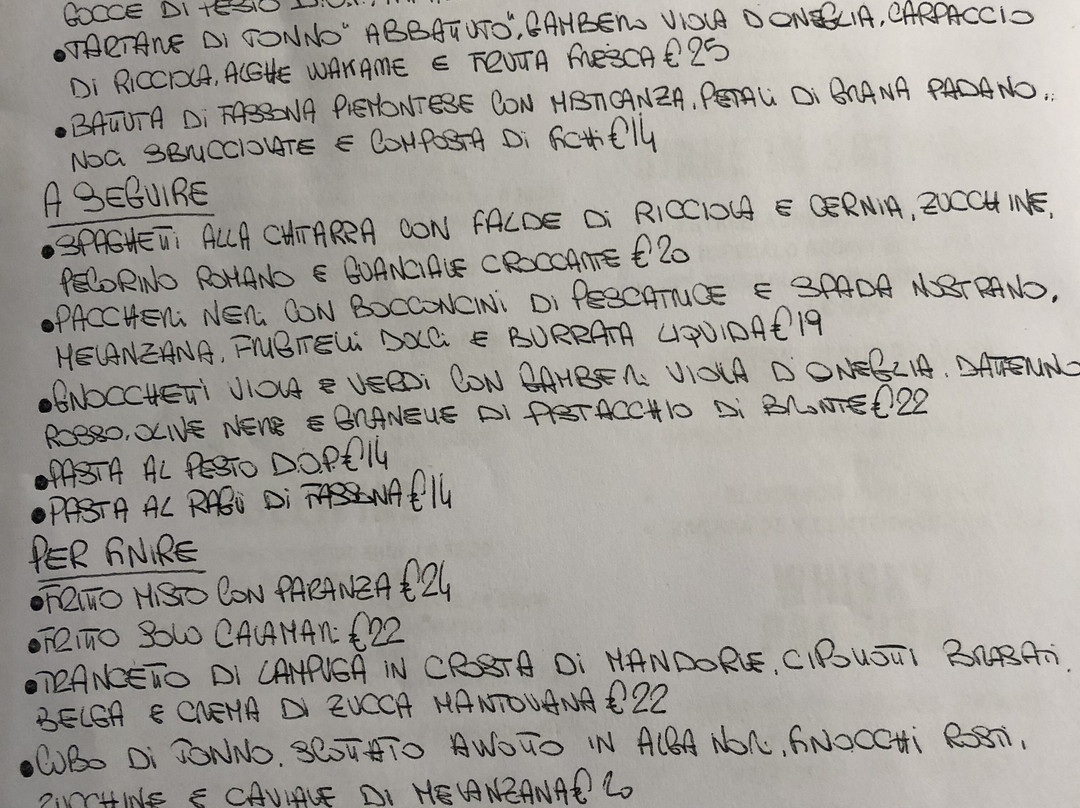 GOCCE DI
• TARTARE DI TONNO "ABBATTUTO", GAMBERO VIOLA D'ONEGLIA, CARPACCIO
DI RICCIOLA, ALGHE WAKAME E FRUTTA FRESCA €25
• BATTUTA DI FASSONA PIEMONTESE CON MISTICANZA, PETALI DI GRANA PADANO,
NOCI SBRICCIOLATE E COMPOSTA DI FICHI €14
A SEGUIRE
• SPAGHETTI ALLA CHITARRA CON FALDE DI RICCIOLA E CERNIA, ZUCCHINE,
PECORINO ROMANO E GUANCIALE CROCCANTE €20
• PACCHERI NERI CON BOCCONCINI DI PESCATRICE E SPADA NOSTRANO,
MELANZANA, FRIGITELLI DOLCI E BURRATA LIQUIDA €19
• GNOCCHETTI VIOLA E VERDI CON GAMBERI VIOLA D'ONEGLIA, DATTERINO
ROSSO, OLIVE NERE E GRANELLE DI PISTACCHIO DI BRONTE €22
• PASTA AL PESTO D.O.P €14
• PASTA AL RAGÙ DI FASSONA €14
PER FINIRE
• FRITTO MISTO CON PARANZA €24
• FRITTO SOLO CALAMARI €22
• TRANCETTO DI LAMPUGA IN CROSTA DI MANDORLE, CIPOLLOTTI BRASATI,
BELGA E CREMA DI ZUCCA MANTOVANA €22
• CUBO DI TONNO SCOTTATO AVVOLTO IN ALGA NORI, FINOCCHI ROSTI,
ZUCCHINE E CAVIALE DI MELANZANA €20